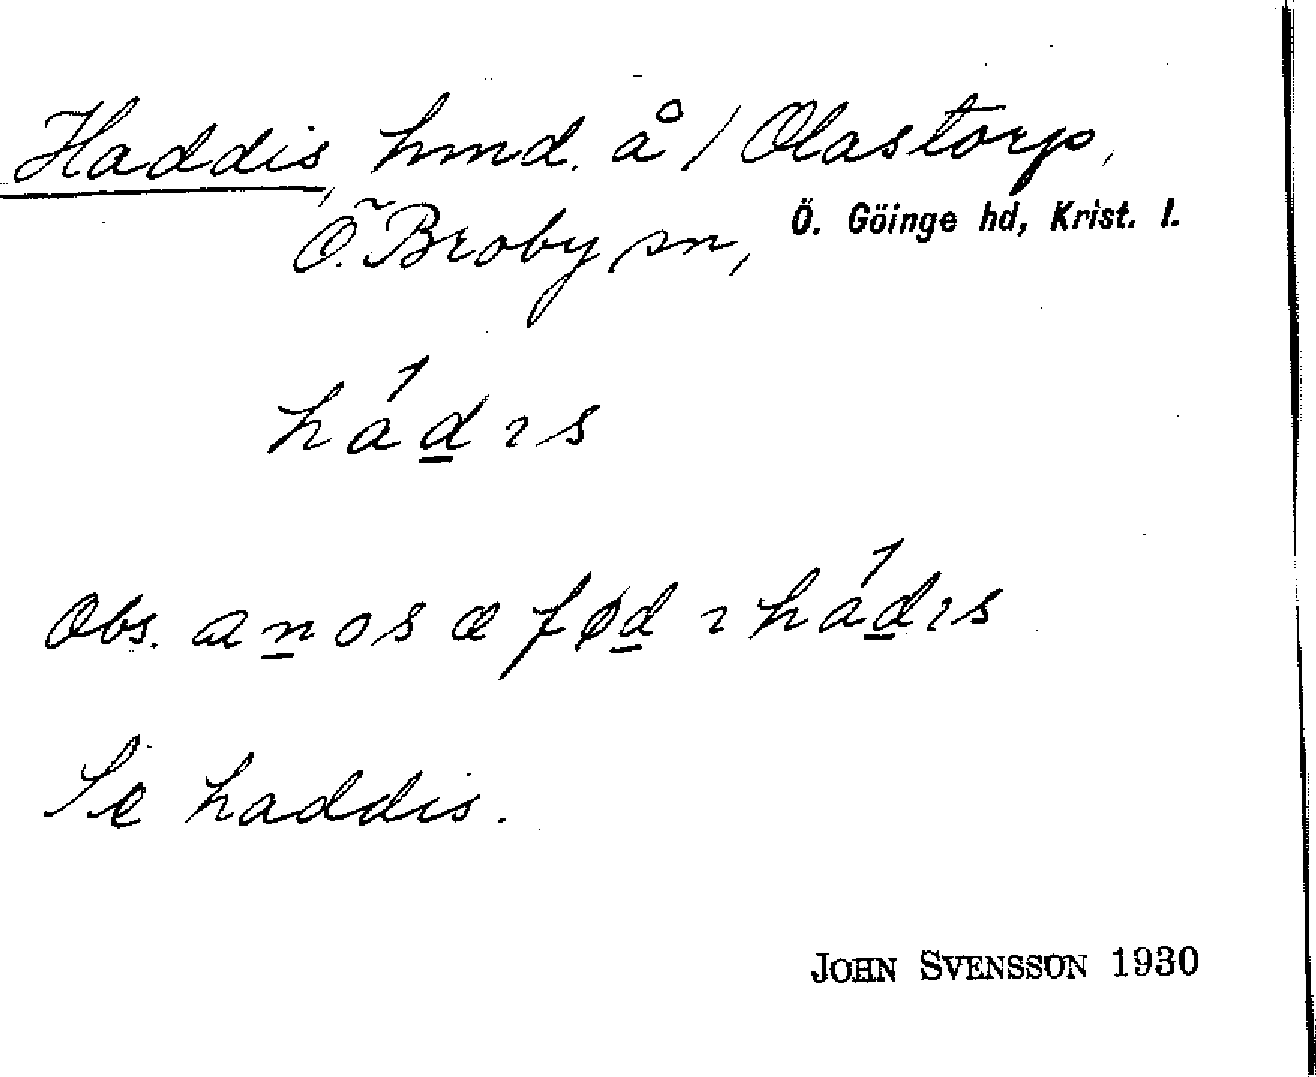 Haddis, hmd. å 1/ Olastorp,
Ö. Broby sn, Ö. Göinge hd, Krist. l.
hádıs
Obs. anos æ fød ı hádıs
Se haddis.
JOHN SVENSSON 1930